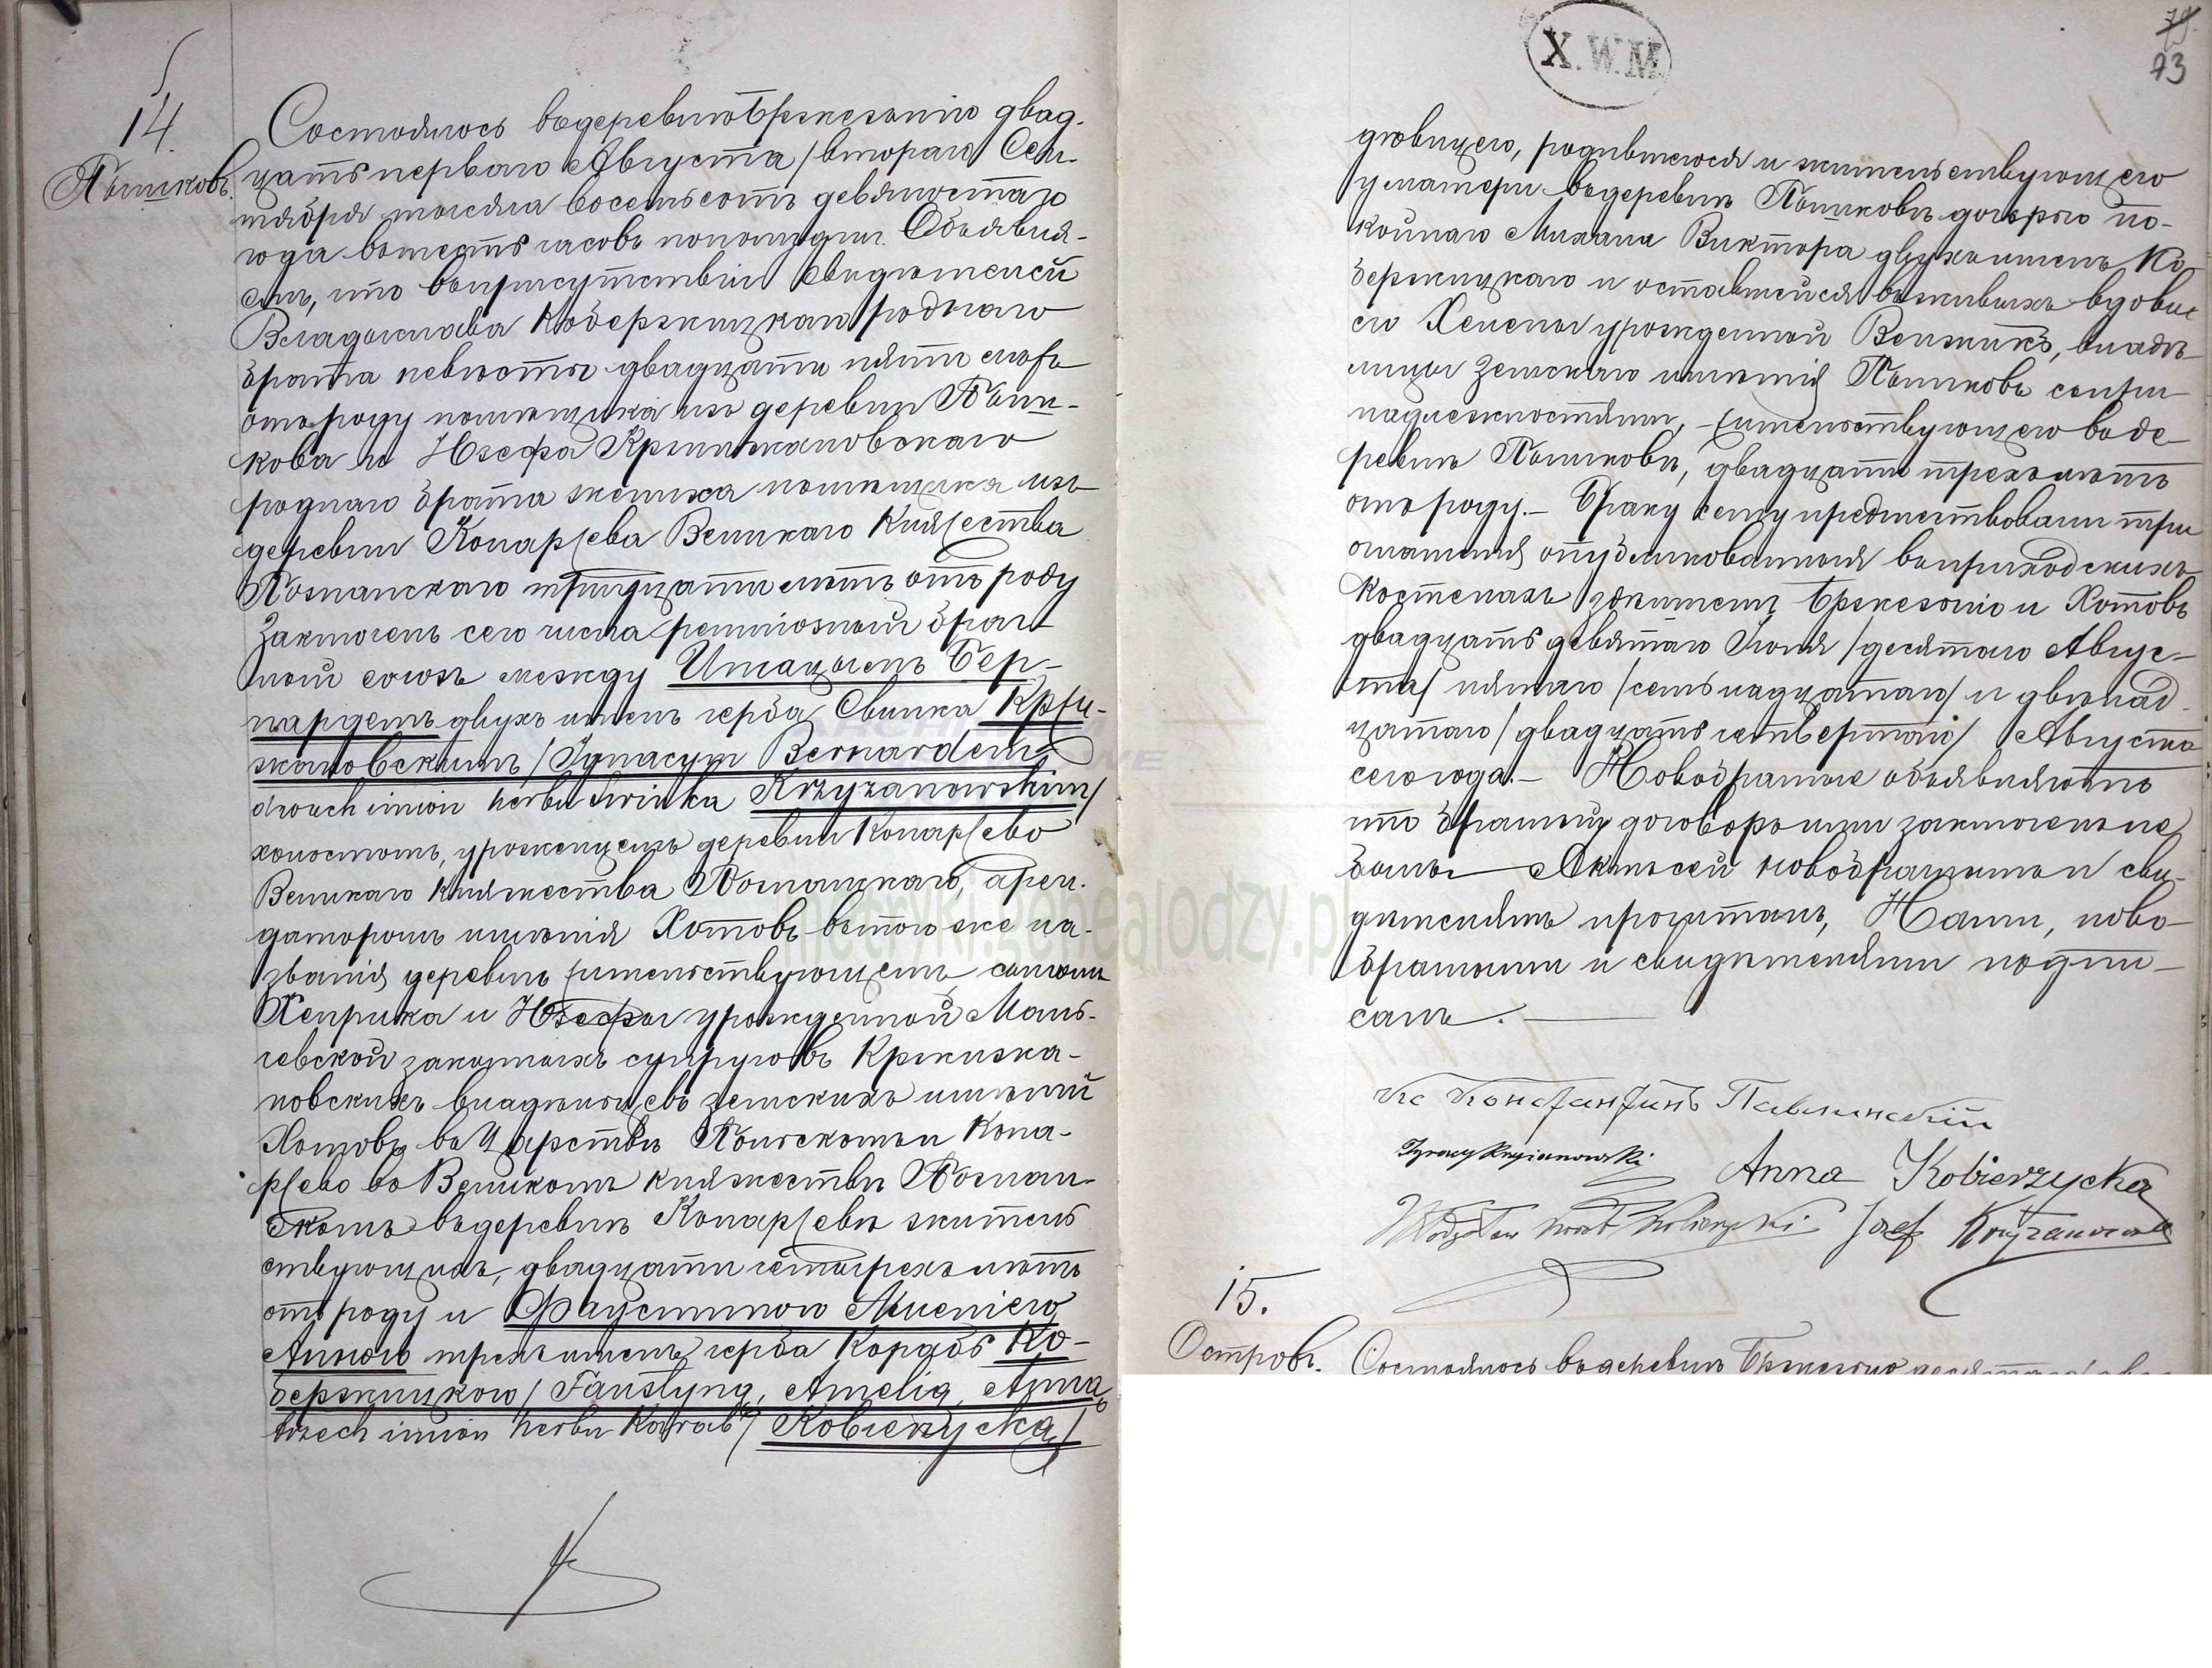 14.
Пѣшковъ.
Состоялось въ деревнѣ Бржезьнiо двад-
цать перваго Августа /втораго Сен-
тября тысяча восемьсотъ девяностаго
года въ шесть часовъ пополудни. Объявля-
емъ, что въ присутствiи свидѣтелей
Владыслава Кобержицкаго роднаго
брата невѣсты двадцати пяти лѣтъ
отъ роду помѣщика изъ деревни
кова и Юзефа Кржижановскаго
роднаго брата жениха помѣщика изъ
деревни Конаржева Великаго Княжества
Познанскаго тридцати лѣтъ отъ роду
заключенъ сего числа религiозный брач
ный союзъ между Игнацымъ Бер-
нардемъ двухъ именъ герба Свинка Кржи-
жановскимъ /Ignacym Bernardem
dwuch imion herbu Świnka Krzyżanowskim/
холостымъ, уроженцемъ деревни Конаржево
Великаго Княжества Познанскаго, арен-
даторомъ имѣнiя Хотовъ въ того же на-
званiя деревнѣ жительствующемъ, сыномъ
Хенрика и Юзефы урожденной Мань-
чевской законныхъ супруговъ Кржижа-
новскихъ владѣльцевъ земскихъ имѣнiй
Хотовъ въ Царствѣ Польскомъ и Кона-
ржево во Великомъ Княжествѣ Познан-
скомъ въ деревнѣ Конаржевѣ житель
ствующихъ, двадцати четырехъ лѣтъ
отъ роду и Фаустыною Амелiею
Анною трехъ именъ герба Корабь Ко-
бержицкою /Faustyną, Amelią, Anną
trzech imion herbu Korab Kobierzycką/
X.W.M.
73
дѣвицею, родившеюся и жительствующею
у матери въ деревнѣ дочерью по-
койнаго Михала Виктора двухъ именъ Ко
бержицкаго и оставшейся въ живыхъ вдовы
его Хелены урожденной владѣ-
лицы земскаго имѣнiя съ при
надлежностями, жительствующею въ де-
ревнѣ двадцати трехъ лѣтъ
отъ роду.– Браку сему предшествовали три
оглашенiя опубликованныя въ приходскихъ
костелахъ Бржезьнiо и Хотовъ
двадцать девятаго Iюля /десятаго Авгус-
та/ пятаго /семьнадцатаго/ и двѣнад
цатаго /двадцать четвертаго/ Августа
сего года.– Новобрачные объявляютъ
что брачный договоръ ими заключенъ не
былъ. Актъ сей новобрачнымъ и сви-
дѣтелямъ прочитанъ, Нами, ново-
брачными и свидѣтелями подпи-
санъ.
Кс Константинъ Павлинскiй
Ignacy Krzyżanowski
Anna Kobierzycka
Józef Krzyżanowski
15.
Островъ.
Состоялось въ деревнѣ Бржезьнiо